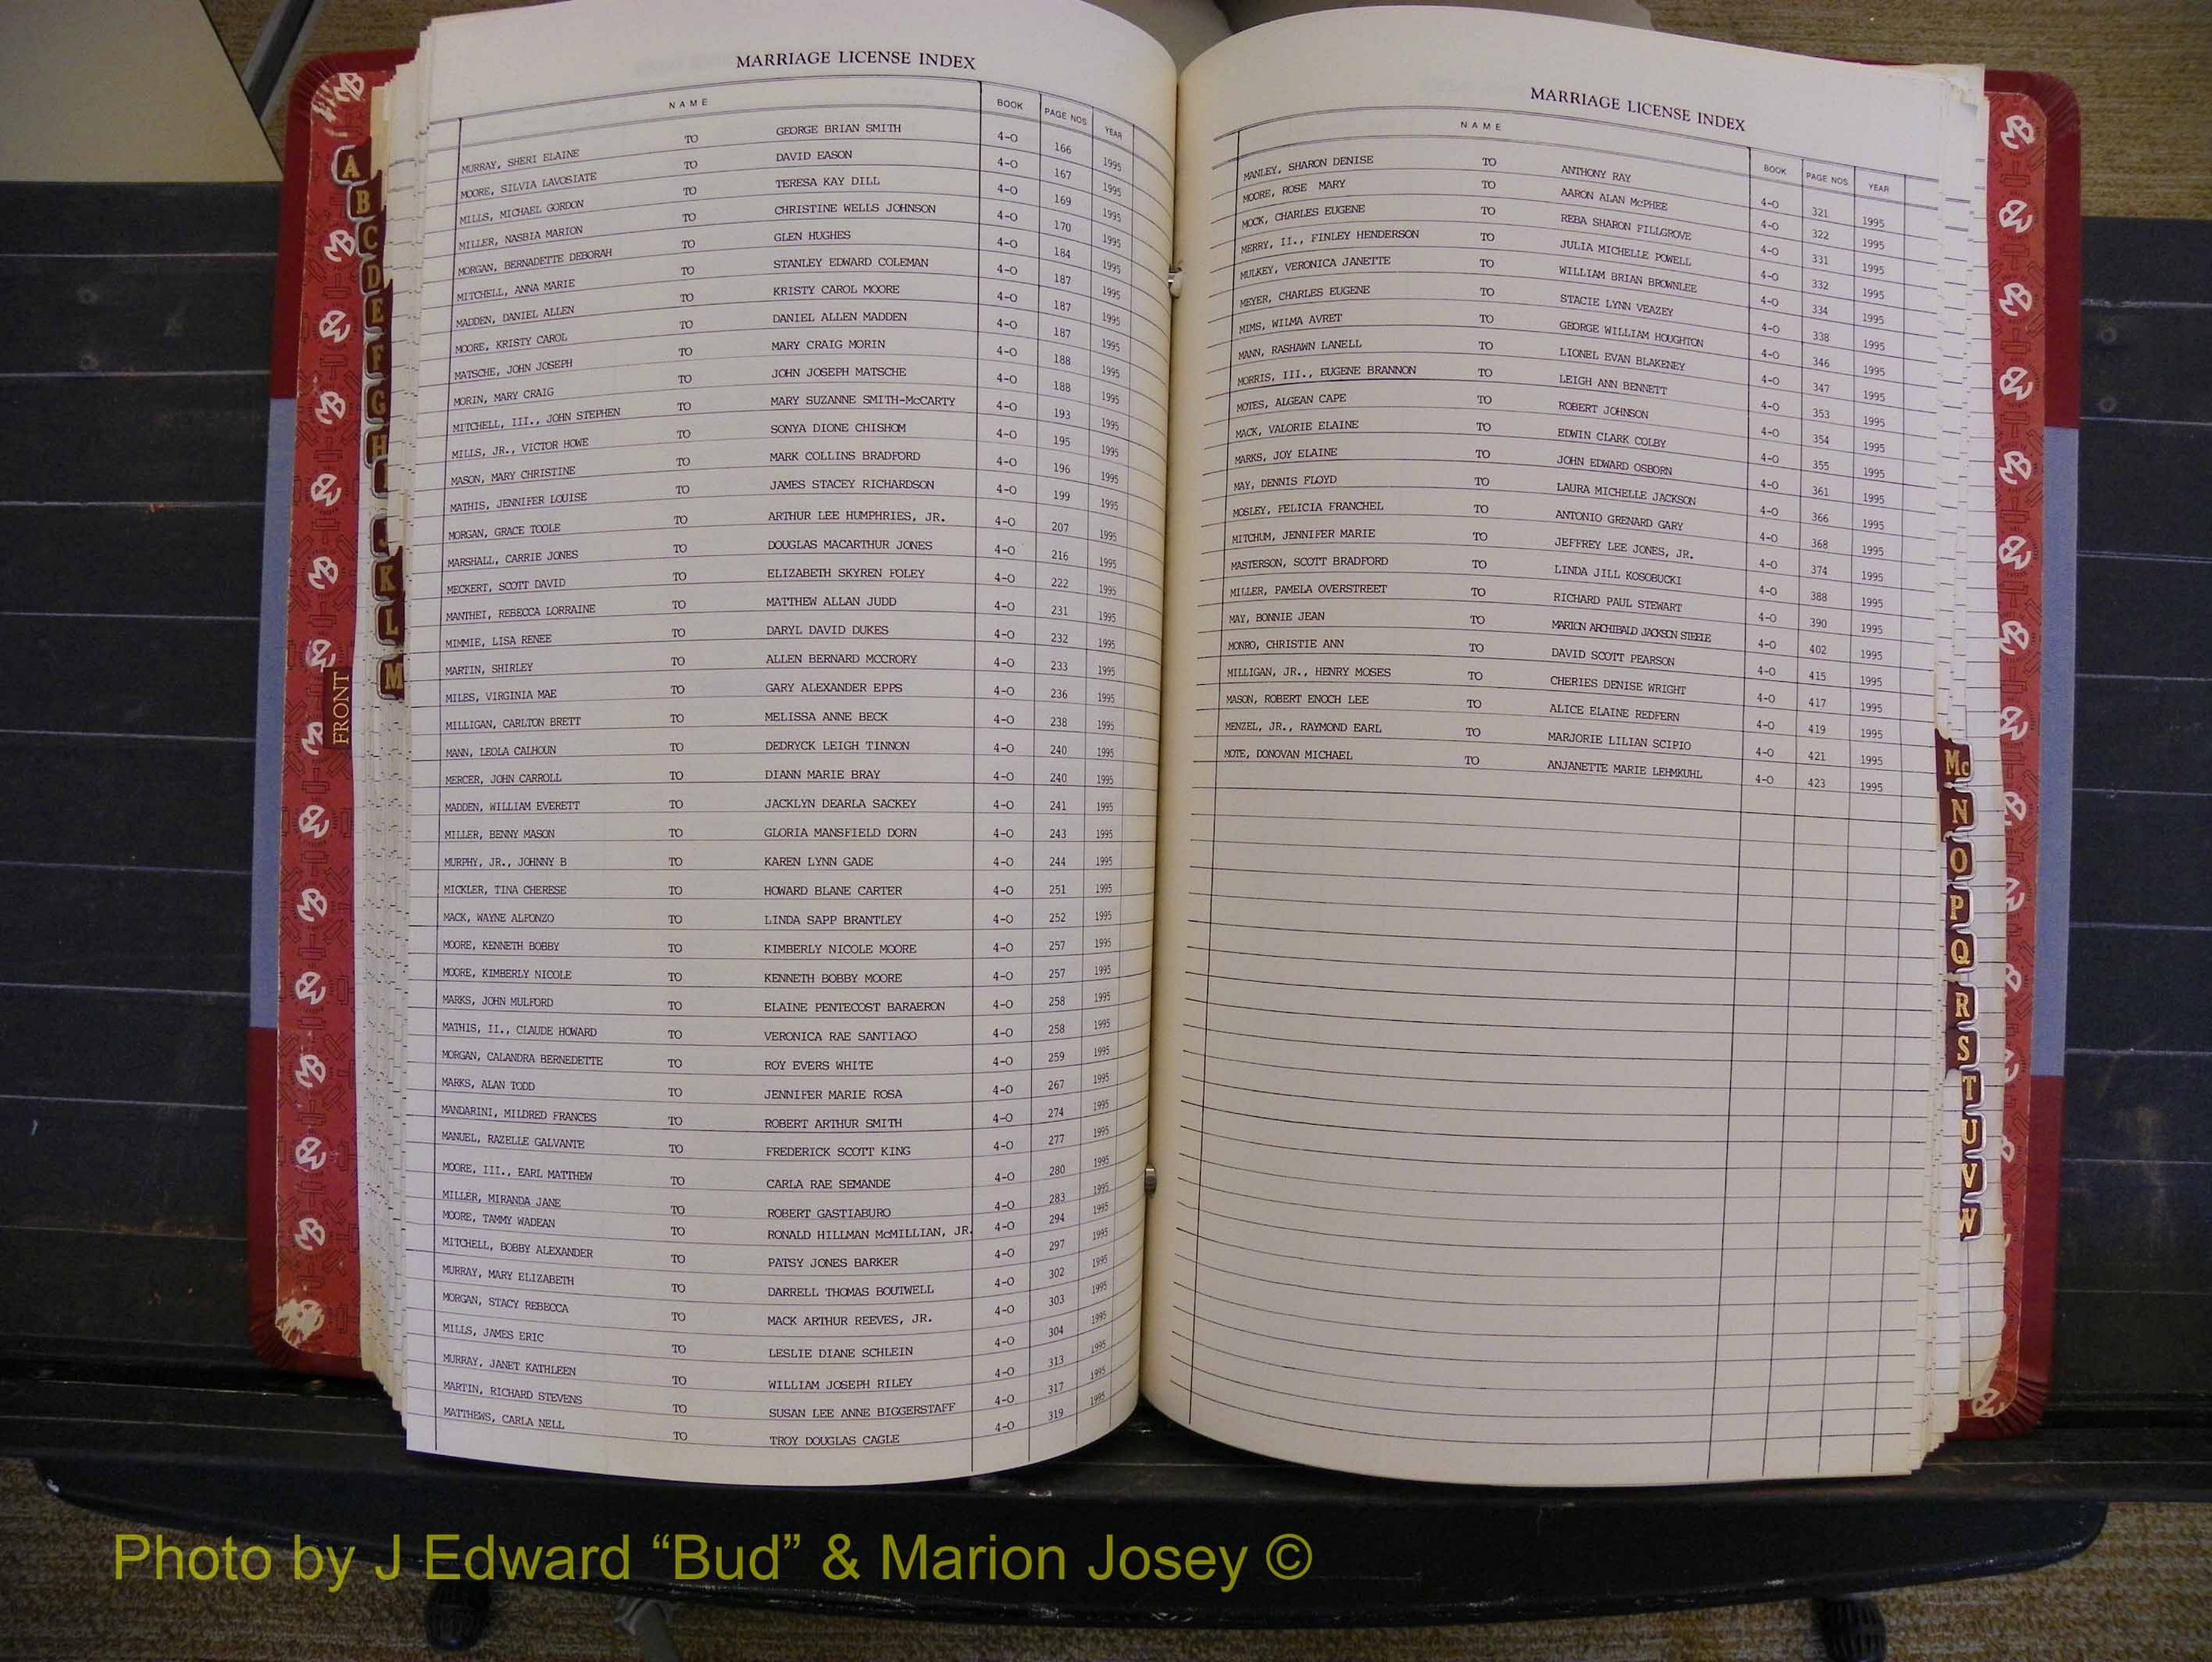 MARRIAGE LICENSE INDEX
NAME BOOK PAGE NOS YEAR
MURRAY, SHERI ELAINE TO GEORGE BRIAN SMITH 4-O 166 1995
MOORE, SILVIA LAVOSIATE TO DAVID EASON 4-O 167 1995
MILLS, MICHAEL GORDON TO TERESA KAY DILL 4-O 169 1995
MILLER, NASBIA MARION TO CHRISTINE WELLS JOHNSON 4-O 170 1995
MORGAN, BERNADETTE DEBORAH TO GLEN HUGHES 4-O 184 1995
MITCHELL, ANNA MARIE TO STANLEY EDWARD COLEMAN 4-O 187 1995
MADDEN, DANIEL ALLEN TO KRISTY CAROL MOORE 4-O 187 1995
MOORE, KRISTY CAROL TO DANIEL ALLEN MADDEN 4-O 187 1995
MATSCHE, JOHN JOSEPH TO MARY CRAIG MORIN 4-O 188 1995
MORIN, MARY CRAIG TO JOHN JOSEPH MATSCHE 4-O 188 1995
MITCHELL, III., JOHN STEPHEN TO MARY SUZANNE SMITH-McCARTY 4-O 193 1995
MILLS, JR., VICTOR HOWE TO SONYA DIONE CHISHOM 4-O 195 1995
MASON, MARY CHRISTINE TO MARK COLLINS BRADFORD 4-O 196 1995
MATHIS, JENNIFER LOUISE TO JAMES STACEY RICHARDSON 4-O 199 1995
MORGAN, GRACE TOOLE TO ARTHUR LEE HUMPHRIES, JR. 4-O 207 1995
MARSHALL, CARRIE JONES TO DOUGLAS MACARTHUR JONES 4-O 216 1995
MECKERT, SCOTT DAVID TO ELIZABETH SKYREN FOLEY 4-O 222 1995
MANTHEI, REBECCA LORRAINE TO MATTHEW ALLAN JUDD 4-O 231 1995
MIMMIE, LISA RENEE TO DARYL DAVID DUKES 4-O 232 1995
MARTIN, SHIRLEY TO ALLEN BERNARD MCCRORY 4-O 233 1995
MILES, VIRGINIA MAE TO GARY ALEXANDER EPPS 4-O 236 1995
MILLIGAN, CARLTON BRETT TO MELISSA ANNE BECK 4-O 238 1995
MANN, LEOLA CALHOUN TO DEDRYCK LEIGH TINNON 4-O 240 1995
MERCER, JOHN CARROLL TO DIANN MARIE BRAY 4-O 240 1995
MADDEN, WILLIAM EVERETT TO JACKLYN DEARLA SACKEY 4-O 241 1995
MILLER, BENNY MASON TO GLORIA MANSFIELD DORN 4-O 243 1995
MURPHY, JR., JOHNNY B TO KAREN LYNN GADE 4-O 244 1995
MICKLER, TINA CHERESE TO HOWARD BLANE CARTER 4-O 251 1995
MACK, WAYNE ALFONZO TO LINDA SAPP BRANTLEY 4-O 252 1995
MOORE, KENNETH BOBBY TO KIMBERLY NICOLE MOORE 4-O 257 1995
MOORE, KIMBERLY NICOLE TO KENNETH BOBBY MOORE 4-O 257 1995
MARKS, JOHN MULFORD TO ELAINE PENTECOST BARAERON 4-O 258 1995
MATHIS, II., CLAUDE HOWARD TO VERONICA RAE SANTIAGO 4-O 258 1995
MORGAN, CALANDRA BERNEDETTE TO ROY EVERS WHITE 4-O 259 1995
MARKS, ALAN TODD TO JENNIFER MARIE ROSA 4-O 267 1995
MANDARINI, MILDRED FRANCES TO ROBERT ARTHUR SMITH 4-O 274 1995
MANUEL, RAZELLE GALVANTE TO FREDERICK SCOTT KING 4-O 277 1995
MOORE, III., EARL MATTHEW TO CARLA RAE SEMANDE 4-O 280 1995
MILLER, MIRANDA JANE TO ROBERT GASTIABURO 4-O 283 1995
MOORE, TAMMY WADEAN TO RONALD HILLMAN McMILLIAN, JR. 4-O 294 1995
MITCHELL, BOBBY ALEXANDER TO PATSY JONES BARKER 4-O 297 1995
MURRAY, MARY ELIZABETH TO DARRELL THOMAS BOUTWELL 4-O 302 1995
MORGAN, STACY REBECCA TO MACK ARTHUR REEVES, JR. 4-O 303 1995
MILLS, JAMES ERIC TO LESLIE DIANE SCHLEIN 4-O 304 1995
MURRAY, JANET KATHLEEN TO WILLIAM JOSEPH RILEY 4-O 313 1995
MARTIN, RICHARD STEVENS TO SUSAN LEE ANNE BIGGERSTAFF 4-O 317 1995
MATTHEWS, CARLA NELL TO TROY DOUGLAS CAGLE 4-O 319 1995
MARRIAGE LICENSE INDEX
NAME BOOK PAGE NOS YEAR
MANLEY, SHARON DENISE TO ANTHONY RAY 4-O 321 1995
MOORE, ROSE MARY TO AARON ALAN McPHEE 4-O 322 1995
MOCK, CHARLES EUGENE TO REBA SHARON FILLGROVE 4-O 331 1995
MERRY, II., FINLEY HENDERSON TO JULIA MICHELLE POWELL 4-O 332 1995
MULKEY, VERONICA JANETTE TO WILLIAM BRIAN BROWNLEE 4-O 334 1995
MEYER, CHARLES EUGENE TO STACIE LYNN VEAZEY 4-O 338 1995
MIMS, WILMA AVRET TO GEORGE WILLIAM HOUGHTON 4-O 346 1995
MANN, RASHAWN LANELL TO LIONEL EVAN BLAKENEY 4-O 347 1995
MORRIS, III., EUGENE BRANNON TO LEIGH ANN BENNETT 4-O 353 1995
MOTES, ALGEAN CAPE TO ROBERT JOHNSON 4-O 354 1995
MACK, VALORIE ELAINE TO EDWIN CLARK COLBY 4-O 355 1995
MARKS, JOY ELAINE TO JOHN EDWARD OSBORN 4-O 361 1995
MAY, DENNIS FLOYD TO LAURA MICHELLE JACKSON 4-O 366 1995
MOSLEY, FELICIA FRANCHEL TO ANTONIO GRENARD GARY 4-O 368 1995
MITCHUM, JENNIFER MARIE TO JEFFREY LEE JONES, JR. 4-O 374 1995
MASTERSON, SCOTT BRADFORD TO LINDA JILL KOSOBUCKI 4-O 388 1995
MILLER, PAMELA OVERSTREET TO RICHARD PAUL STEWART 4-O 390 1995
MAY, BONNIE JEAN TO MARION ARCHIBALD JACKSON STEELE 4-O 402 1995
MONRO, CHRISTIE ANN TO DAVID SCOTT PEARSON 4-O 415 1995
MILLIGAN, JR., HENRY MOSES TO CHERIES DENISE WRIGHT 4-O 417 1995
MASON, ROBERT ENOCH LEE TO ALICE ELAINE REDFERN 4-O 419 1995
MENZEL, JR., RAYMOND EARL TO MARJORIE LILIAN SCIPIO 4-O 421 1995
MOTE, DONOVAN MICHAEL TO ANJANETTE MARIE LEHMKUHL 4-O 423 1995
A
B
C
D
E
F
G
H
I
J
K
L
M
FRONT
Mc
N
O
P
Q
R
S
T
U
V
W
Photo by J Edward “Bud” & Marion Josey ©